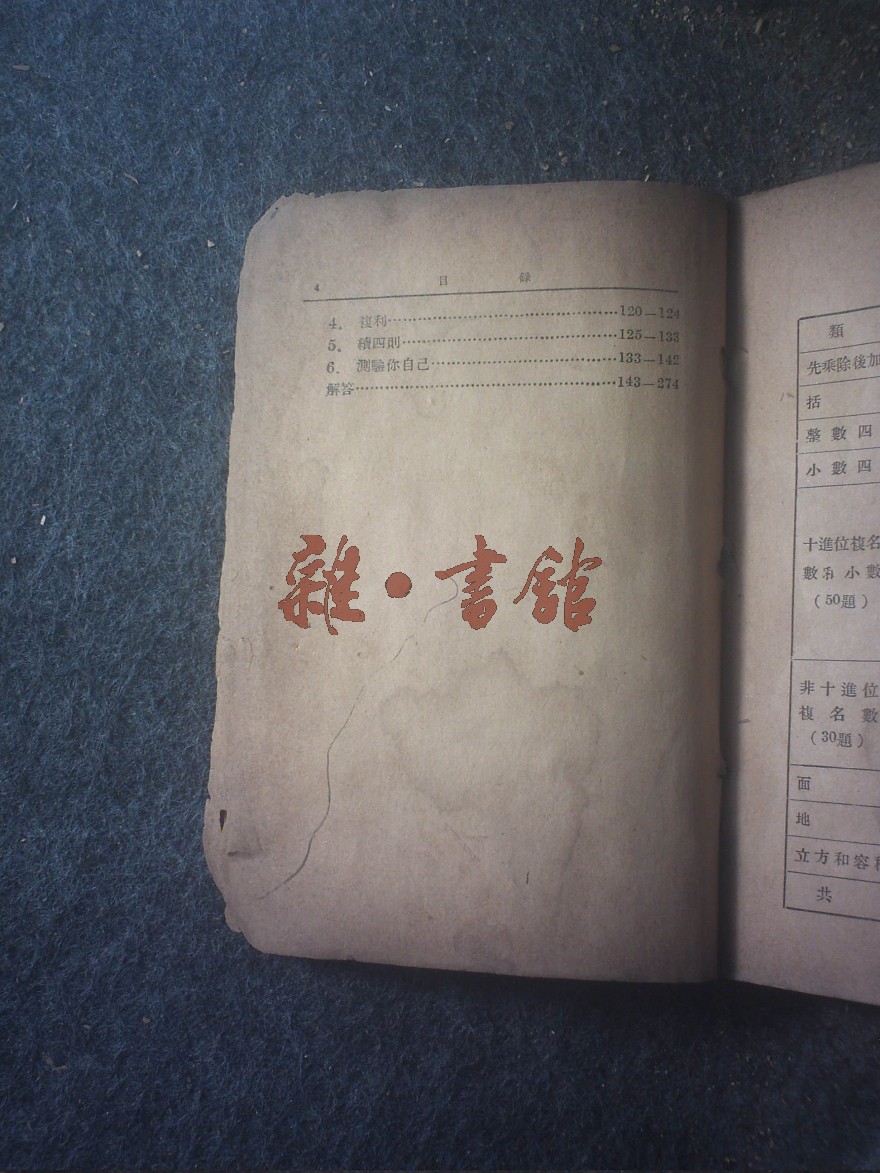 4 目 錄
4. 複利……120—124
5. 續四則……125—133
6. 測驗你自己……133—142
解答……143—274
雜・書館
類
先乘除後加
括
整數四
小數四
十進位複名
數和小數
（50題）
非十進位
複名數
（30題）
面
地
立方和容積
共